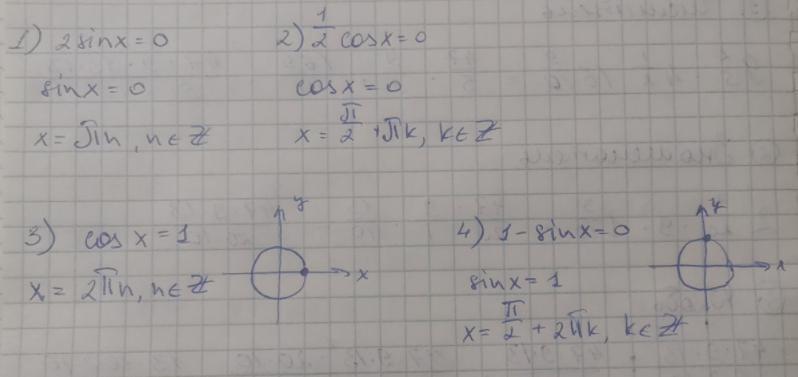 1) 2 sin x = 0
sin x = 0
x = πn, n ∈ Z
2) 1/2 cos x = 0
cos x = 0
x = π/2 + πk, k ∈ Z
3) cos x = 1
x = 2πn, n ∈ Z
y
x
4) 1 - sin x = 0
sin x = 1
x = π/2 + 2πk, k ∈ Z
y
x